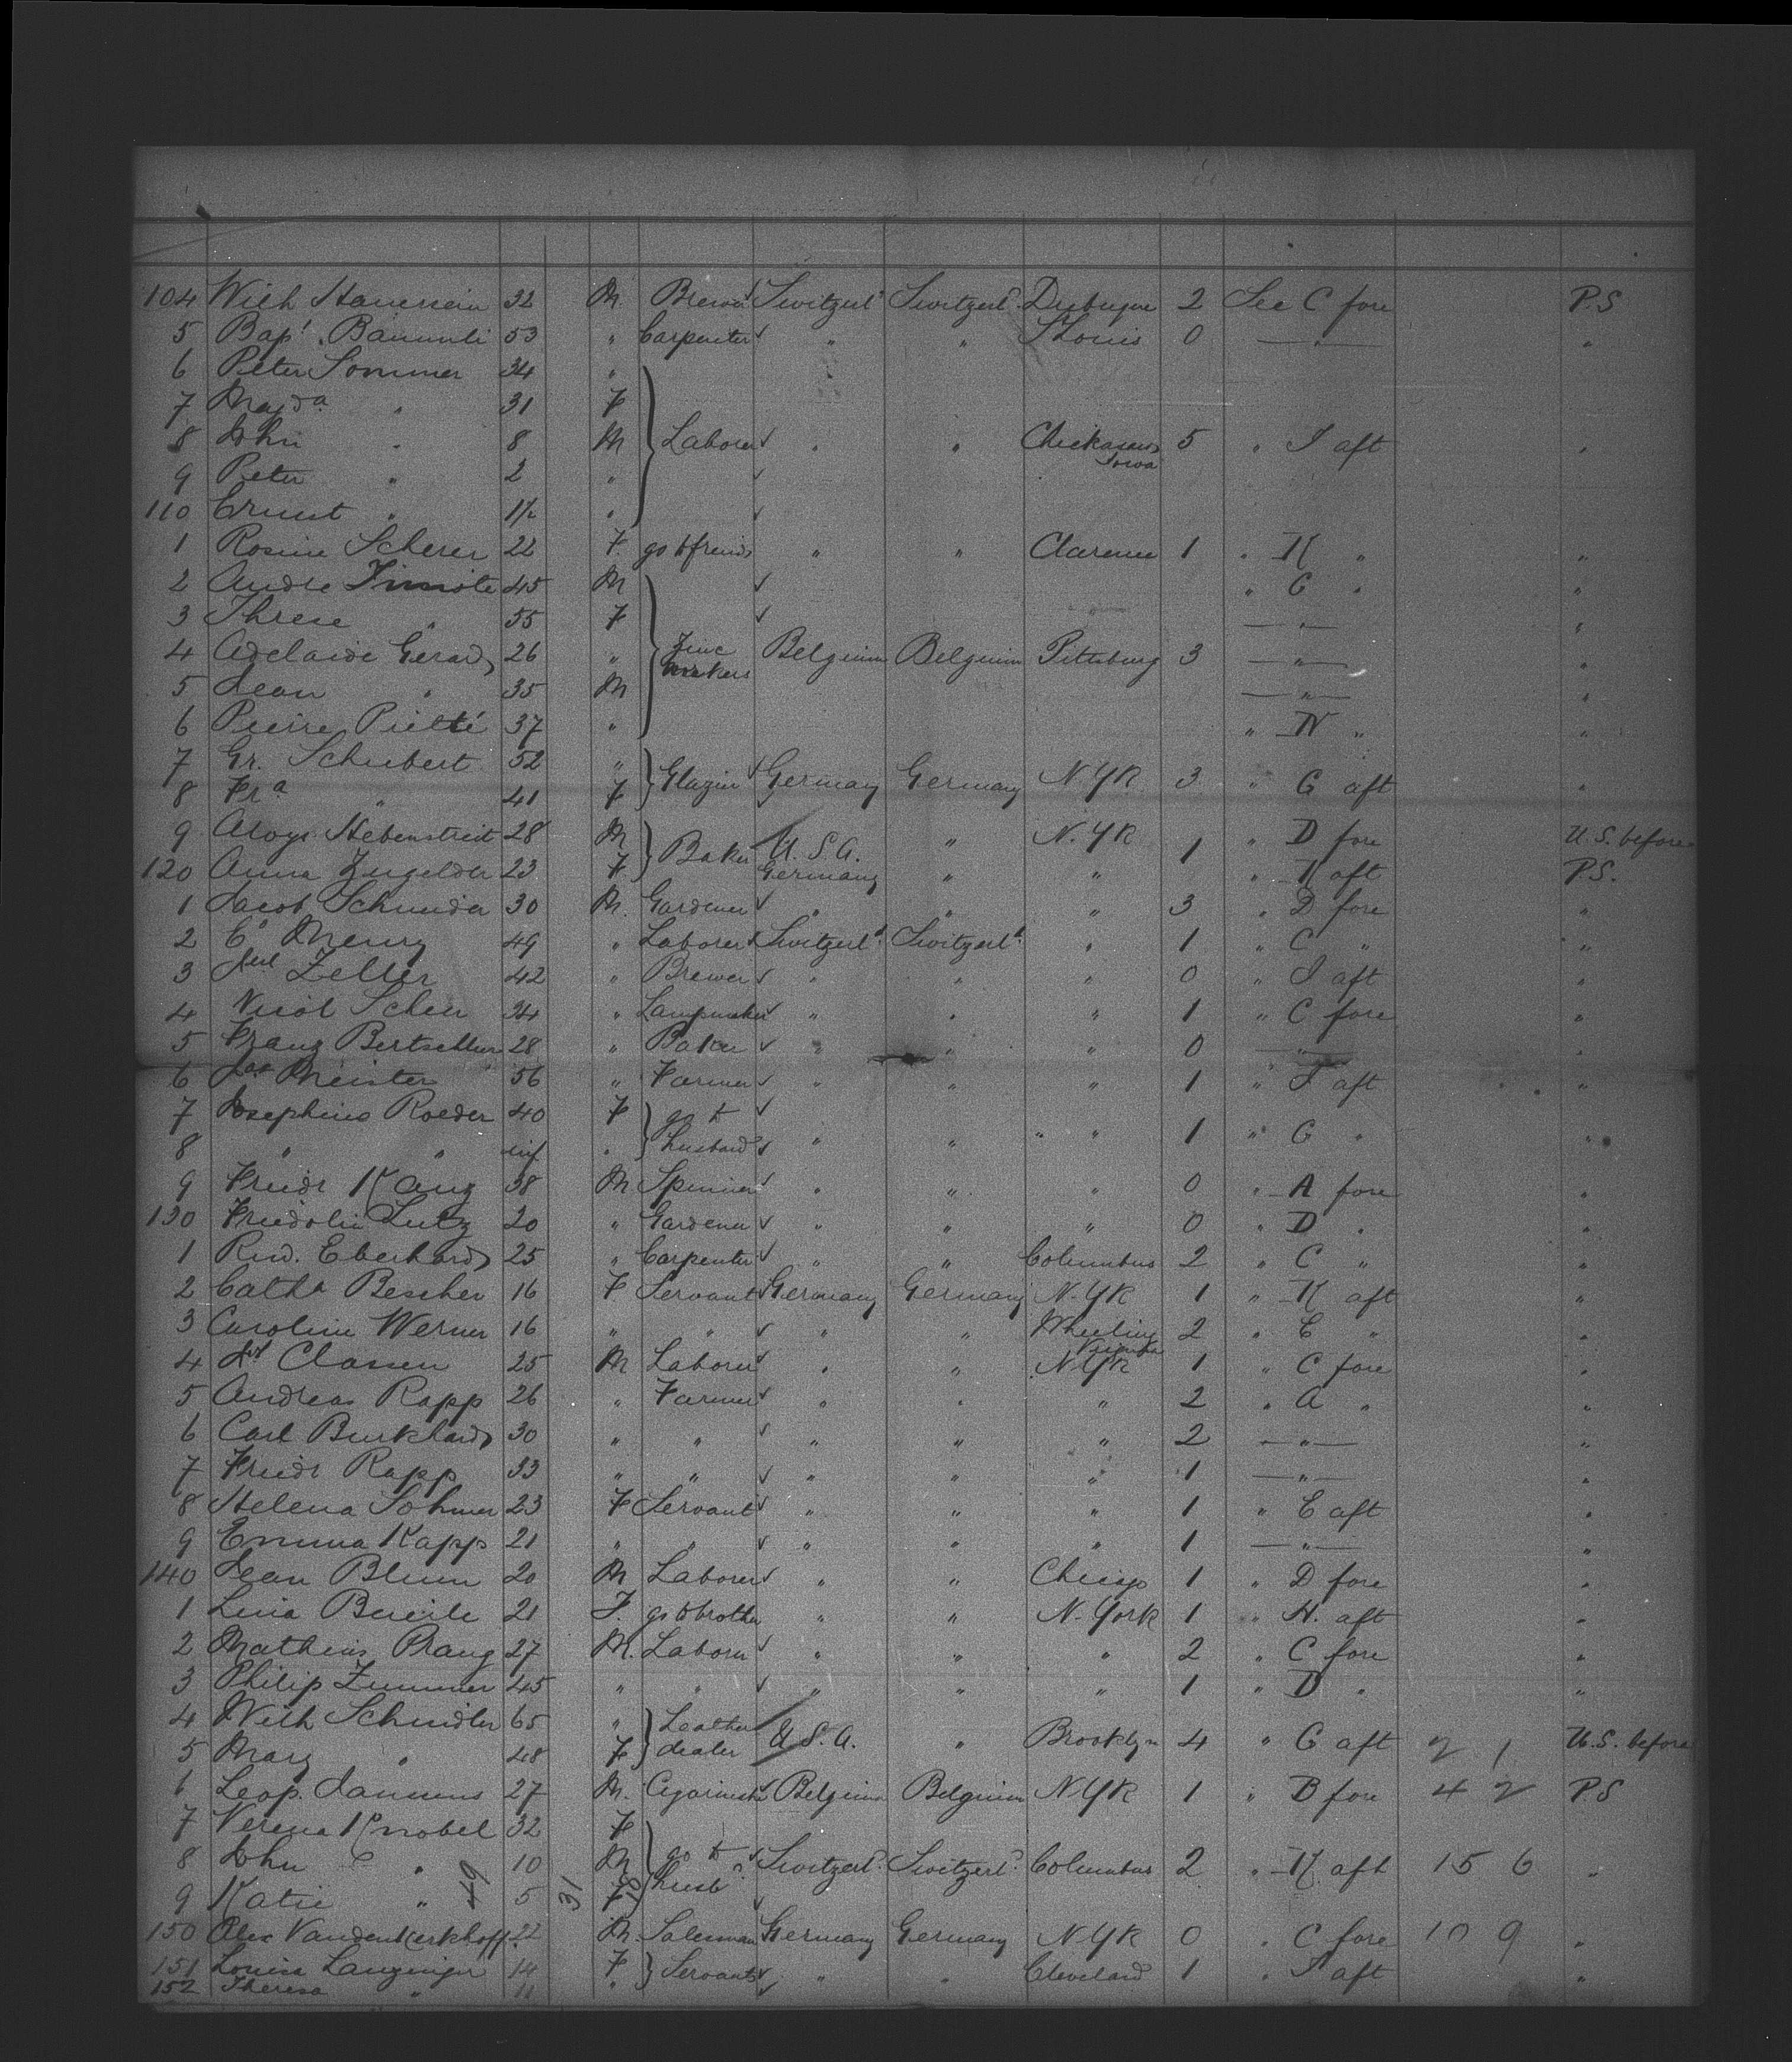 104 Wilh 32 M. Brewer Switzerld Switzerld Dubuque 2 Sec C fore P.S
5 Bapt. 53 " Carpenter " " St Louis 0 — " — "
6 Peter Sommer 34 "
7 Magda " 31 F
8 John " 8 M Laborer " " Chickasaw Iowa 5 " I aft "
9 Peter " 2 "
110 Ernest " 1½ "
1 Rosine Scherer 22 F. go to friends " " Clarence 1 " K " "
2 Andre 45 M " G " "
3 Threse " 55 F — " — "
4 Adelaide Gerard 26 " Zinc workers Belgium Belgium Pittsburg 3 — " — "
5 Jean " 35 M — " — "
6 Pierre 37 " " N " "
7 Gr. Schubert 52 "
8 Fra " 41 F Glazier Germany Germany N.Yk 3 " G aft "
9 Aloys Hebenstreit 28 M Baker U.S.A. " N.Yk 1 " D fore U.S. before
120 Anna 23 F Germany " " " K aft P.S.
1 Jacob Schneider 30 M. Gardener " " " 3 " D fore "
2 Cs Meury 49 " Laborer Switzerld. Switzerld. " 1 " C " "
3 Zeller 42 " Brewer " " " 0 " I aft "
4 34 " Lampmaker " " " 1 " C fore "
5 Franz 28 " Baker " " " 0 — " — "
6 Meister 56 " Farmer " " " 1 " I aft "
7 Josephine Roeder 40 F go to
8 " " inf " husband " " " " 1 " G " "
9 Friedr Kanz 38 M " " " 0 " A fore "
130 Fridolin Lutz 20 " Gardener " " " 0 " D " "
1 Rud. Eberhard 25 " Carpenter " " Columbus 2 " C " "
2 Catha Bescher 16 F Servant Germany Germany N.Yk 1 " K aft "
3 Caroline Werner 16 " " " " Wheeling 2 " E " "
4 Classen 25 M Laborer " " N.Yk 1 " C fore "
5 Andreas Rapp 26 " Farmer " " " 2 " A " "
6 Carl Burkhard 30 " " " " " 2 — " — "
7 Friedr Rapp 33 " " " " " 1 — " — "
8 Helena Sohmer 23 F Servant " " " 1 " E aft "
9 Emma Kapp 21 " " " " " 1 — " — "
140 Jean Blum 20 M Laborer " " Chicago 1 " D fore "
1 Lina 21 F. go to brother " " N.York 1 " H. aft "
2 Mathias Prang 27 M. Laborer " " " 2 " C fore "
3 Philip Zimmer 45 " " " " " 1 " D " "
4 Wilh Schindler 65 " Leather
5 Mary " 48 F dealer U.S.A. " Brooklyn 4 " G aft 2 1 U.S. before
6 Leop. Janssens 27 M. Belgium Belgium N.Yk 1 " B fore 4 2 P.S
7 Verena Knobel 32 F
8 John " 10 M go to husbd Switzerld. Switzerld. Columbus 2 " K aft 15 6 "
9 Katie " 49 5 31 F
150 Alex Vandenkerkhoff 22 M. Salesman Germany Germany N.Yk 0 " C fore 10 9 "
151 Louisa 14 F Servants " " Cleveland 1 " I aft "
152 Theresa " 11 " "